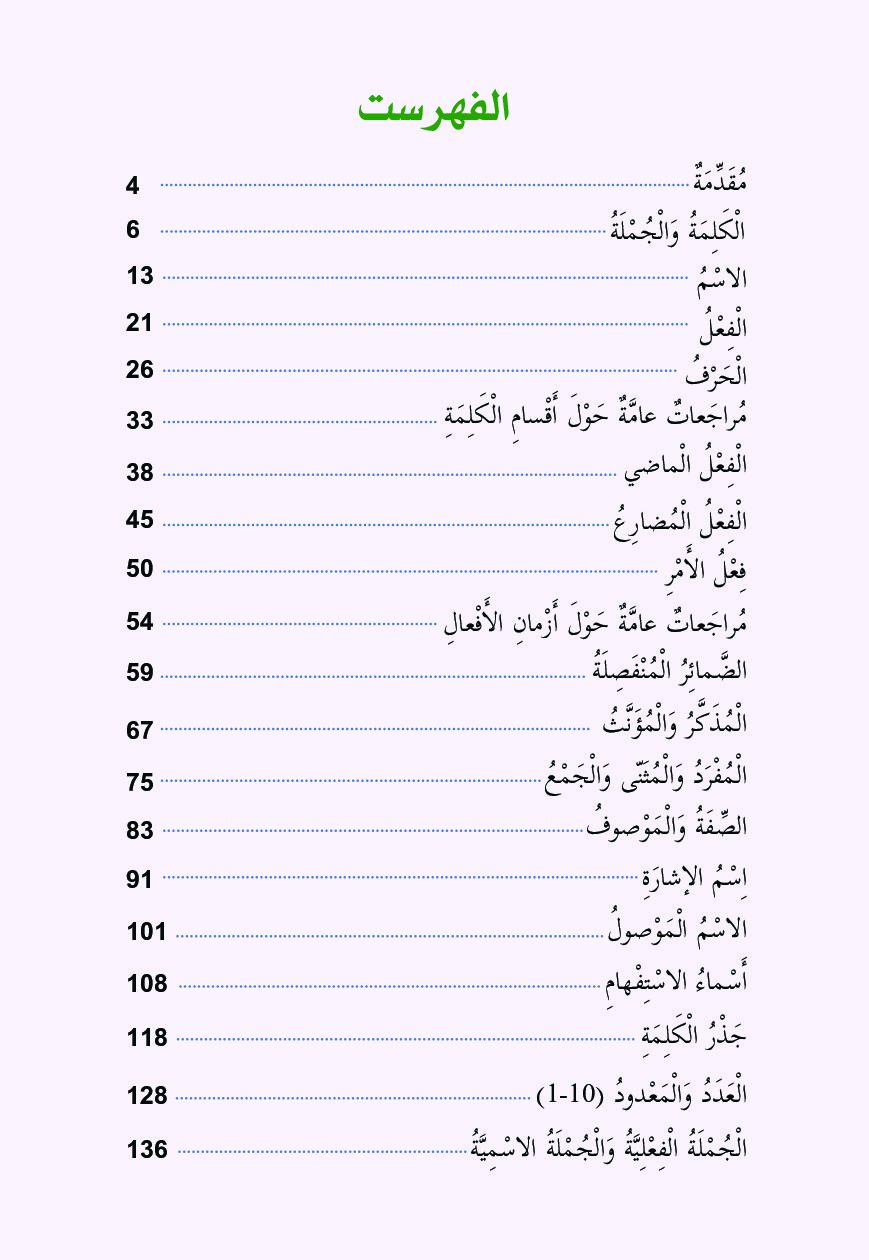 الفهرست
مُقَدِّمَةٌ ........ 4
الْكَلِمَةُ وَالْجُمْلَةُ ........ 6
الاسْمُ ........ 13
الْفِعْلُ ........ 21
الْحَرْفُ ........ 26
مُراجَعاتٌ عامَّةٌ حَوْلَ أَقْسامِ الْكَلِمَةِ ........ 33
الْفِعْلُ الْماضي ........ 38
الْفِعْلُ الْمُضارِعُ ........ 45
فِعْلُ الأَمْرِ ........ 50
مُراجَعاتٌ عامَّةٌ حَوْلَ أَزْمانِ الأَفْعالِ ........ 54
الضَّمائِرُ الْمُنْفَصِلَةُ ........ 59
الْمُذَكَّرُ وَالْمُؤَنَّثُ ........ 67
الْمُفْرَدُ وَالْمُثَنّى وَالْجَمْعُ ........ 75
الصِّفَةُ وَالْمَوْصوفُ ........ 83
اِسْمُ الإشارَةِ ........ 91
الاسْمُ الْمَوْصولُ ........ 101
أَسْماءُ الاسْتِفْهامِ ........ 108
جَذْرُ الْكَلِمَةِ ........ 118
الْعَدَدُ وَالْمَعْدودُ (1-10) ........ 128
الْجُمْلَةُ الْفِعْلِيَّةُ وَالْجُمْلَةُ الاسْمِيَّةُ ........ 136